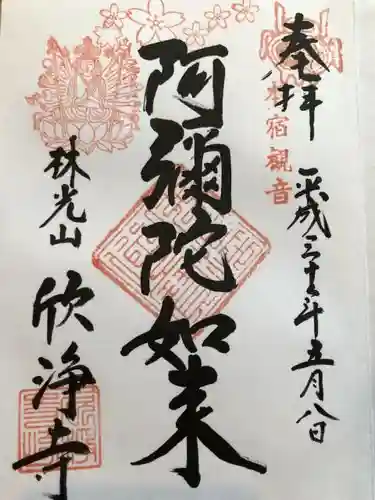 奉拝
宿觀音
平成三十年五月八日
阿彌陀如来
林光山
欣浄寺